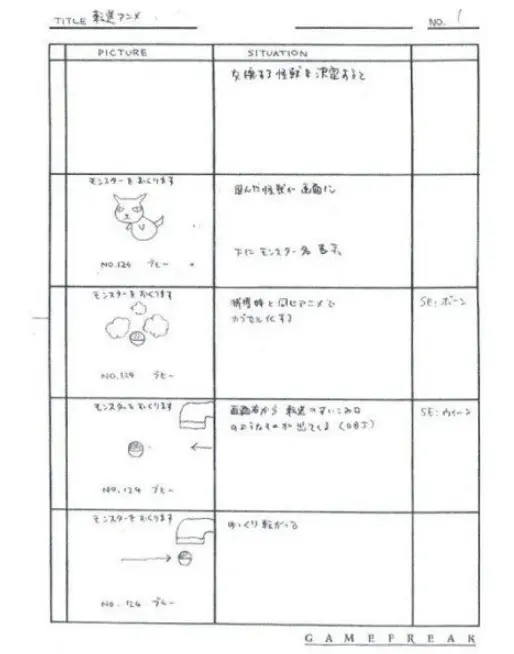 TITLE 転送アニメ
NO. 1
PICTURE
SITUATION
交換する怪獣を決定すると
モンスターをおくります
選んだ怪獣が画面に
下にモンスター名表示。
NO.124 ブヒー
モンスターをおくります
捕獲時と同じアニメで
カプセル化する
SE:ボーン
NO.124 ブヒー
モンスターをおくります
画面右から転送のすいこみ口
のようなものが出てくる(OBJ)
SE:ウィーン
NO.124 ブヒー
モンスターをおくります
ゆっくり転がってる
NO.124 ブヒー
GAMEFREAK